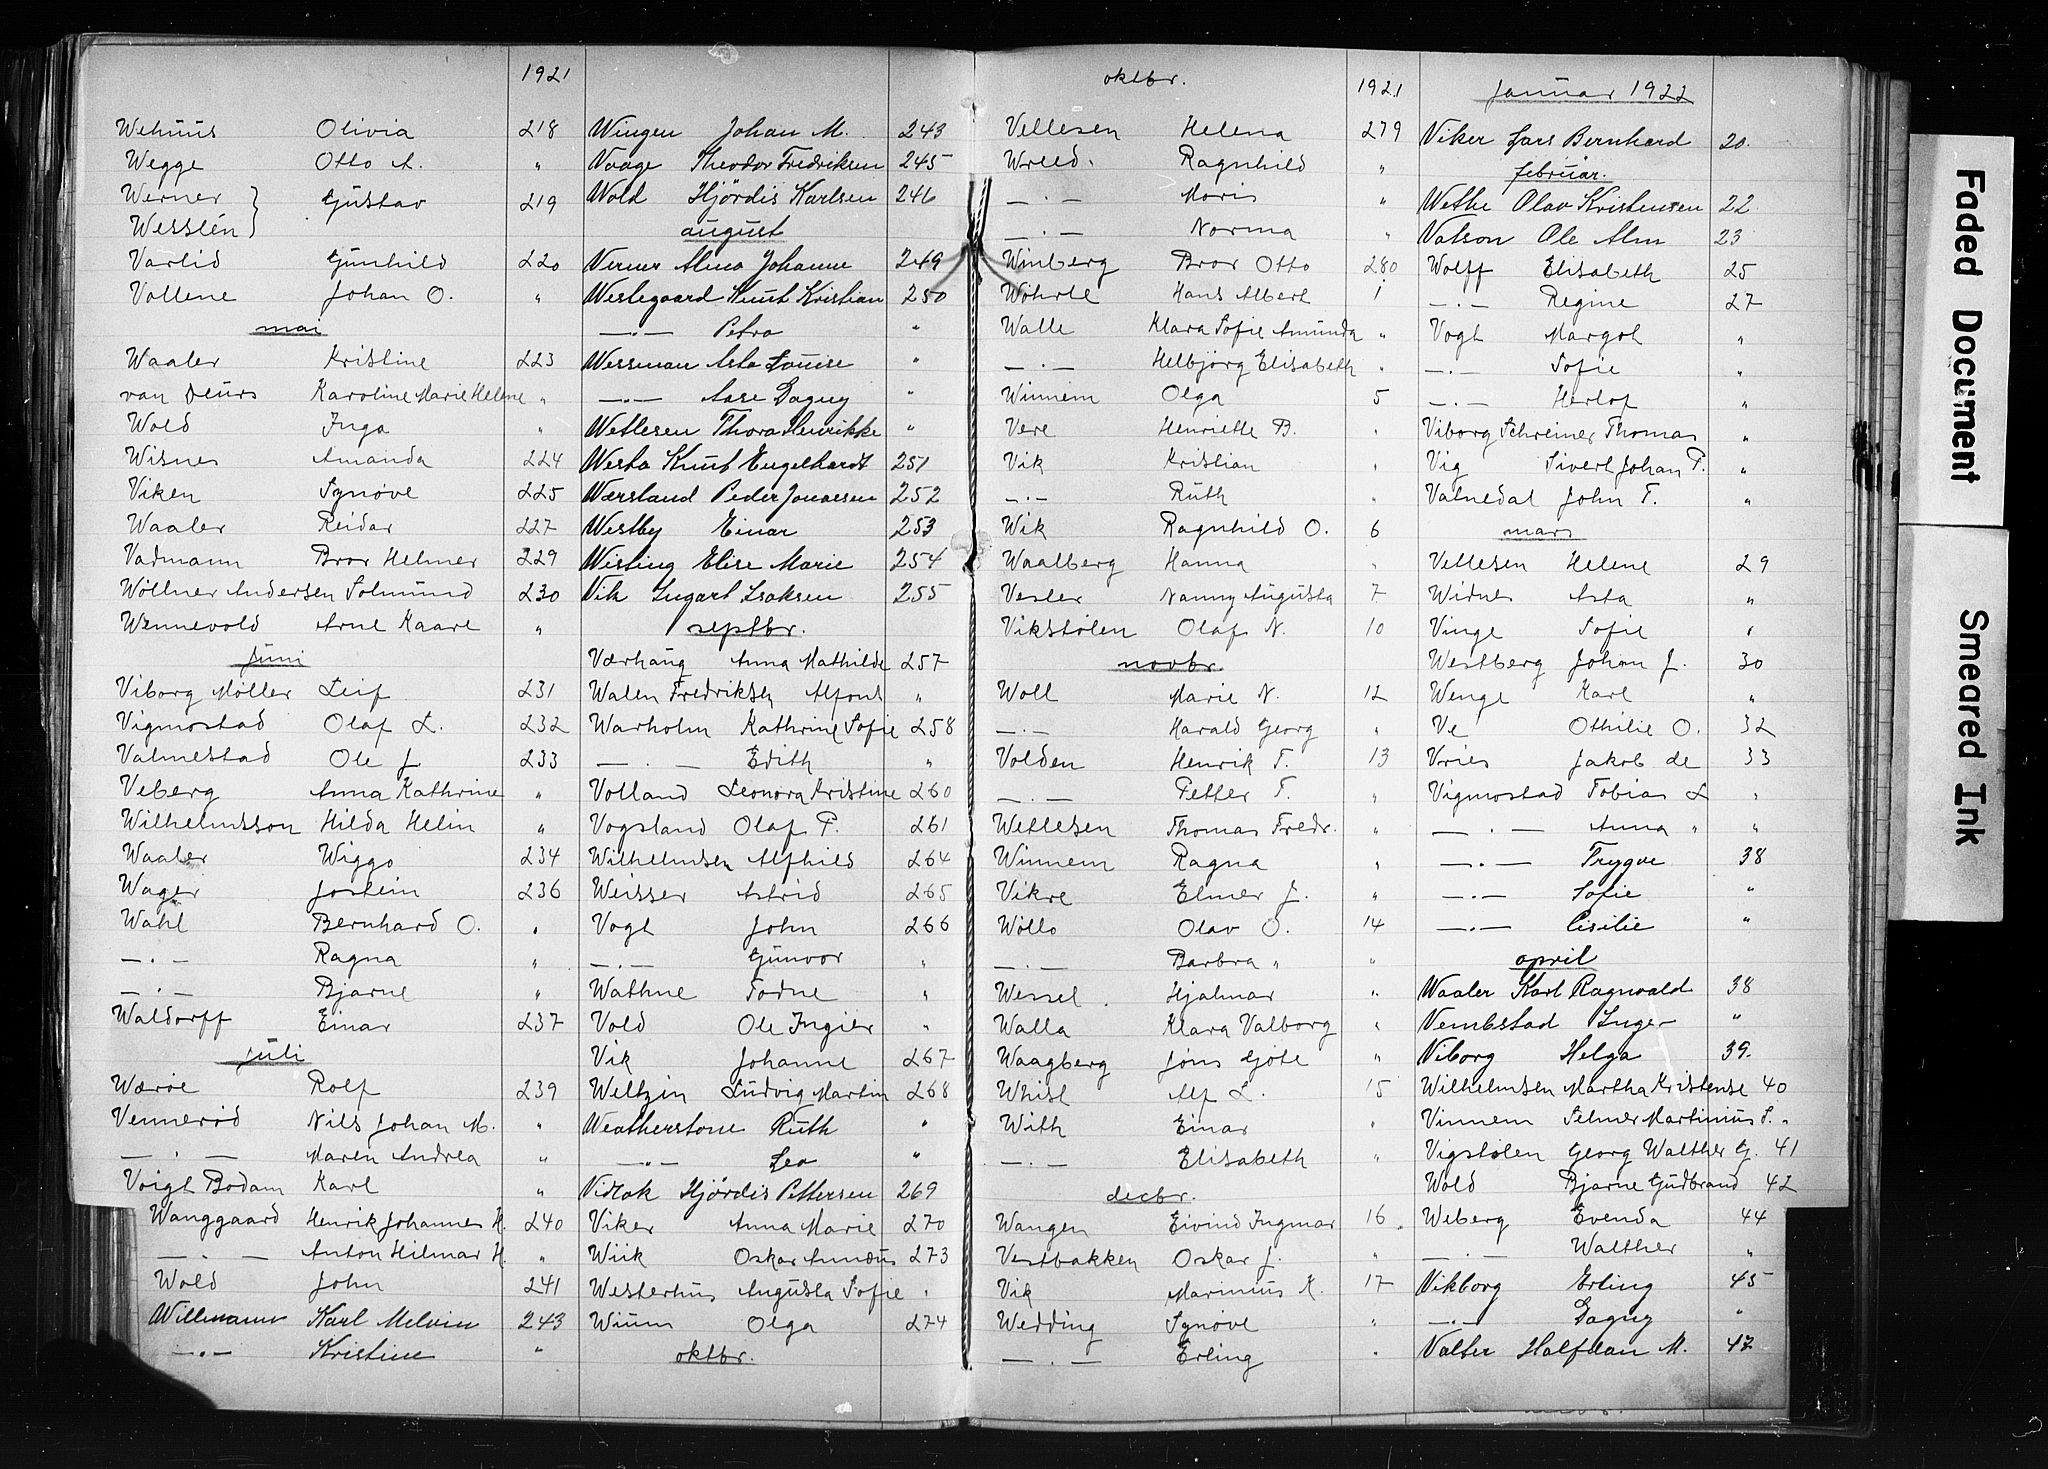 1921
Wehuus Olivia 218
Wegge Otto A. "
Werner } Gustav 219
Wesslén }
Varlid Gunhild 220
Vollene Johan O. "
mai
Waaler Kristine 223
van Deurs Karoline Marie Helene "
Wold Inga "
Wisnes Amanda 224
Viken Synøve 225
Waaler Reidar 227
Vadmann Bror Helmer 229
Wøllner Andersen Solmund 230
Wennevold Arne Kaare "
juni
Viborg Møller Leif 231
Vigmostad Olaf L. 232
Valmestad Ole J 233
Veberg Anna Kathrine "
Wilhelmsson Hilda Helin "
Waaler Wiggo 234
Wager Jostein 236
Wahl Bernhard O. "
—.— Ragna "
—.— Bjarne "
Waldorff Einar 237
juli
Wærøe Rolf 239
Vennerød Nils Johan M. "
—.— Maren Andrea "
Voigt Bodam Karl "
Wanggaard Henrik Johannes H. 240
—.— Anton Hilmar H. "
Wold John 241
Willemann Karl Melvin 243
—.— Kristine "
Wingen Johan M. 243
Vaage Theodor Fredriksen 245
Wold Hjördis Karlsen 246
august
Verner Alma Johanne 249
Westegaard Knut Kristian 250
—.— Petra "
Wessman Asta Louise "
—.— Aase Dagny "
Wetlesen Thora Henrikke "
Westa Knut Engelhardt 251
Wærsland Peder Jonassen 252
Westby Einar 253
Wisting Elise Marie 254
Vik Ingart Isaksen 255
septbr.
Værhaug Anna Mathilde 257
Walen Fredriksen Alfons "
Warholm Kathrine Sofie 258
—.— Edith "
Volland Leonora Kristine 260
Vogsland Olaf P. 261
Wilhelmsen Alfhild 264
Weisser Astrid 265
Vogt John 266
—.— Gunvor "
Wathne Todne "
Vold Ole Ingier "
Vik Johanne 267
Weltzin Ludvig Martin 268
Weatherstone Ruth "
—"— Leo "
Vidlok Hjördis Pettersen 269
Viker Anna Marie 270
Wiik Oskar Annæus 273
Westerhus Augusta Sofie "
Wium Olga 274
oktbr.
oktbr. 1921
Vellesen Helena 279
Wreed. Ragnhild "
—.— Maris "
—.— Norma "
Winberg Bror Otto 280
Wöhrle Hans Albert 1
Walle Klara Sofie Amunda "
—.— Helbjörg Elisabeth "
Winnem Olga 5
Vere Henriette B. "
Vik Kristian "
—.— Ruth "
Wik Ragnhild O. 6
Waalberg Hanna "
Vesler Nanny Augusta 7
Vikstølen Olaf N. 10
novbr.
Woll Marie N. 12
—.— Harald Georg "
Volden Henrik T. 13
—.— Petter T. "
Wetlesen Thomas Fredr. "
Winnem Ragna "
Vikre Elmer J. "
Wollo Olav O. 14
—.— Barbra " "
Wessel Hjalmar "
Walla Klara Valborg "
Waagberg Jöns Göte "
Whist Alf L. 15
With Einar
—.— Elisabeth "
decbr.
Wangen Eivind Ingmar 16
Vestbakken Oskar J. "
Vik Marinius K. 17
Wedding Synøve "
—.— Erling "
Januar 1922
Viker Lars Bernhard 20.
februar.
Wethe Olav Kristensen 22
Vatson Ole Alm 23
Wolff Elisabeth 25
—.— Regine 27
Vogt Margot "
—.— Sofie "
—.— Herlof "
Viborg Schreiner Thomas "
Vig Sivert Johan P. "
Valnedal John T. "
mars
Vellesen Helene 29
Widnes Asta "
Vinge Sofie "
Westberg Johan J. 30
Wenge Karl "
Ve Othilie O. 32
Vries Jakob de 33
Vigmostad Tobias L "
—.— Anna " "
—.— Trygve 38
—.— Sofie "
—.— Cisilie "
april
Waaler Karl Ragnvald 38
Vembstad Inge- "
Viborg Helga 39.
Wilhelmsen Martha Kristense 40
Vinnem Selmer Martinius S. "
Vigstølen Georg Walther G. 41
Wold Bjarne Gudbrand 42
Weberg Evenda 44
—.— Walther "
Vikborg Erling 45
—.— Dagny "
Valter Halfdan M. 47
Faded Document
Smeared Ink